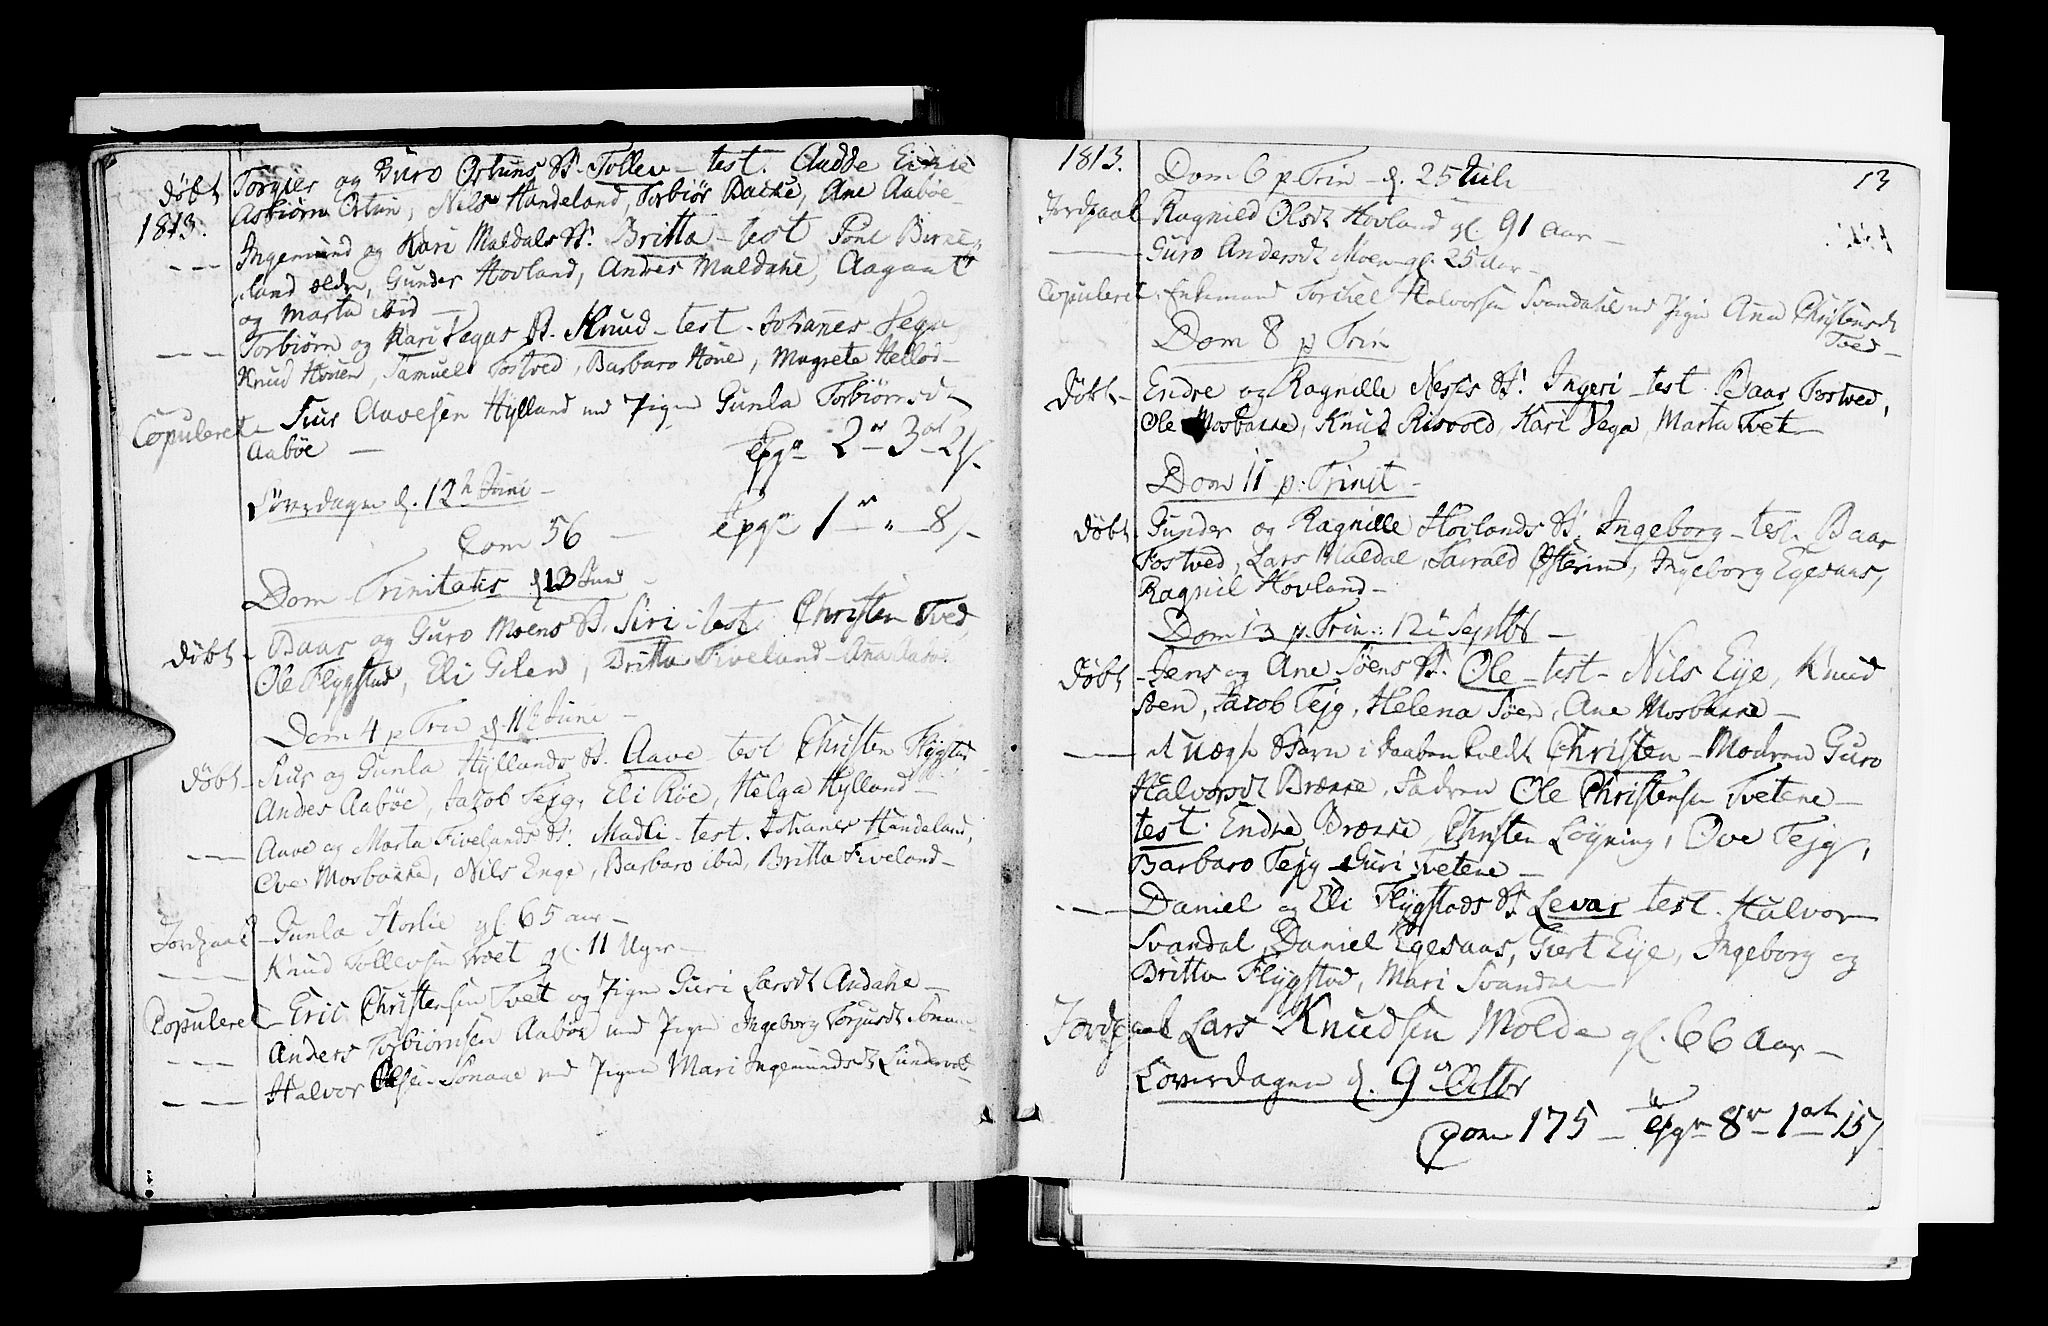 døbt Torgier og Guro Ortuns B. Tollev - test. Audde Eikie
1813. Asbiørn Ortun, Nils Handeland, Torbiør Bakke, Ane Aabøe
--- Ingemund og Kari Maldals B: Britta - test Povel Birke-
land ældr, Gunder Hovland, Andres Maldahl, Aagaat
og Marta ibid -
--- Torbiørn og Kari Vegas B. Knud - test. Johanes Vega
Knud Honen, Samuel Fostved, Barbaro Hone, Magrete
Copuleret - Siur Aavesen Hylland med Pigen Gunla Torbiørnsd -
Aabøe -
2 r 3 ort 2 s.
Løverdagen d. 12 h Juni -
Com 56 - 1 r " 8 s -
Dom Trinitatis d 13 Juni -
Døbt - Baar og Guro Moens B. Siri - test. Christen Tved
Ole Flygstad, Eli Gilen, Britta Fiveland - Ana
Dom 4 p Trin d 11 h Juni -
døbt - Siur og Gunla Hyllands B. Aave - test Christen Flygstad,
Andres Aabøe, Jakob Tejg, Eli Røe, Helga Hylland -
--- Aave og Marta Fivelands B: Madli - test. Johanes Handeland,
Ove Mosbakke, Nils Enge, Barbaro ibid, Britta Fiveland -
Jordpaak - Gunla Horlie gl. 65 aar -
--- Knud Tollevsen Troet gl. 11 Uger -
Copuleret - Eric Christensen Tvet og Pigen Guri Larsdt Andahl -
--- Anders Torbiørnsen Aabøe med Pigen Ingeborg Torjusdt
--- Halvor Olsen Sønaae med Pigen Mari Ingemundsdt Lundevold
1813. Dom 6 p Trin - d. 25 Juli 13
Jordpaak Ragnild Olsdt Hovland gl. 91 Aar -
--- Guro Andersdt Moen gl. 25 aar -
Copuleret: Enkemand Torkel Halvorsen Svandahl med Pigen Ana Christensdt
Tved -
Dom 8 p Trin
Døbt - Endre og Ragnille Neses B: Ingeri - test. Baar Fostved,
Ole Mosbakke, Knud Risvold, Kari Vega, Marta Tvet
Dom 11 p: Trinit -
døbt - Gunder og Ragnille Hovlands B. Ingeborg - test. Baar
Fostved, Lars Maldal, Østerim, Ingeborg Egesaas,
Ragnil Hovland -
Dom 13 p. Trin: 12 Septbr -
Døbt - Jens og Ane Søens B. Ole - test - Nils Eye, Knud
Søen, Jacob Tejg, Helena Søen, Ane Mosbakke -
--- et uægte Barn i Daaben kaldt Christen - Modren Guro
Halvorsdt Brække, Fadren Ole Christensen Tvetene -
test. Endre Brække, Christen Løyning, Ove Tejg,
Barbaro Tejg Guri Tvetene -
--- Daniel og Eli Flygstads B. Levar test. Halvor
Svandal, Daniel Egesaas, Giert Eye, Ingeborg og
Britta Flygstad, Mari Svandal
Jordpaak Lars Knudsen Molde gl. 66 Aar -
Løverdagen d. 9 de Octbr
Com 175 - 8 r 1 ort 15 s